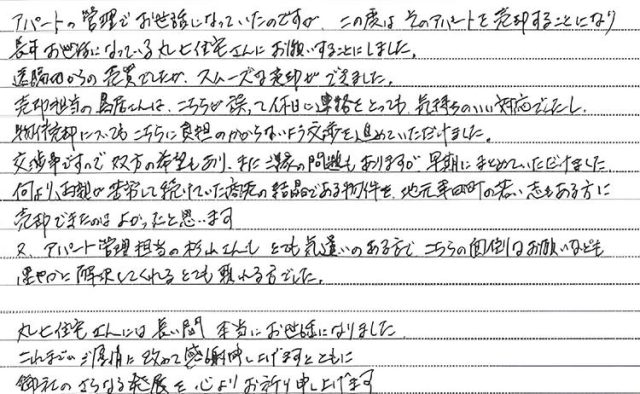 アパートの管理でお世話になっていたのですが、この度はそのアパートを売却することになり
長年お世話になっている丸七住宅さんにお願いすることにしました。
遠隔地からの売買でしたが、スムーズな売却ができました。
売却担当の鳥居さんは、こちらが誤って休日に連絡をとっても、気持ちのいい対応でしたし、
物件売却についてもこちらに負担のかからないよう交渉を進めていただけました。
交渉事ですので双方の希望もあり、またご縁の問題もありますが早期にまとめていただけました。
何より、両親が苦労して続けていた商売の結晶である物件を、地元 の若い志もある方に
売却できたのはよかったと思います
又、アパート管理担当の杉山さんも とても気遣いのある方で、こちらの面倒なお願いなども
速やかに解決してくれるとても頼れる方でした。
丸七住宅さんには長い間 本当にお世話になりました
これまでのご厚情に改めて感謝申し上げますとともに
御社のさらなる発展を心よりお祈り申し上げます